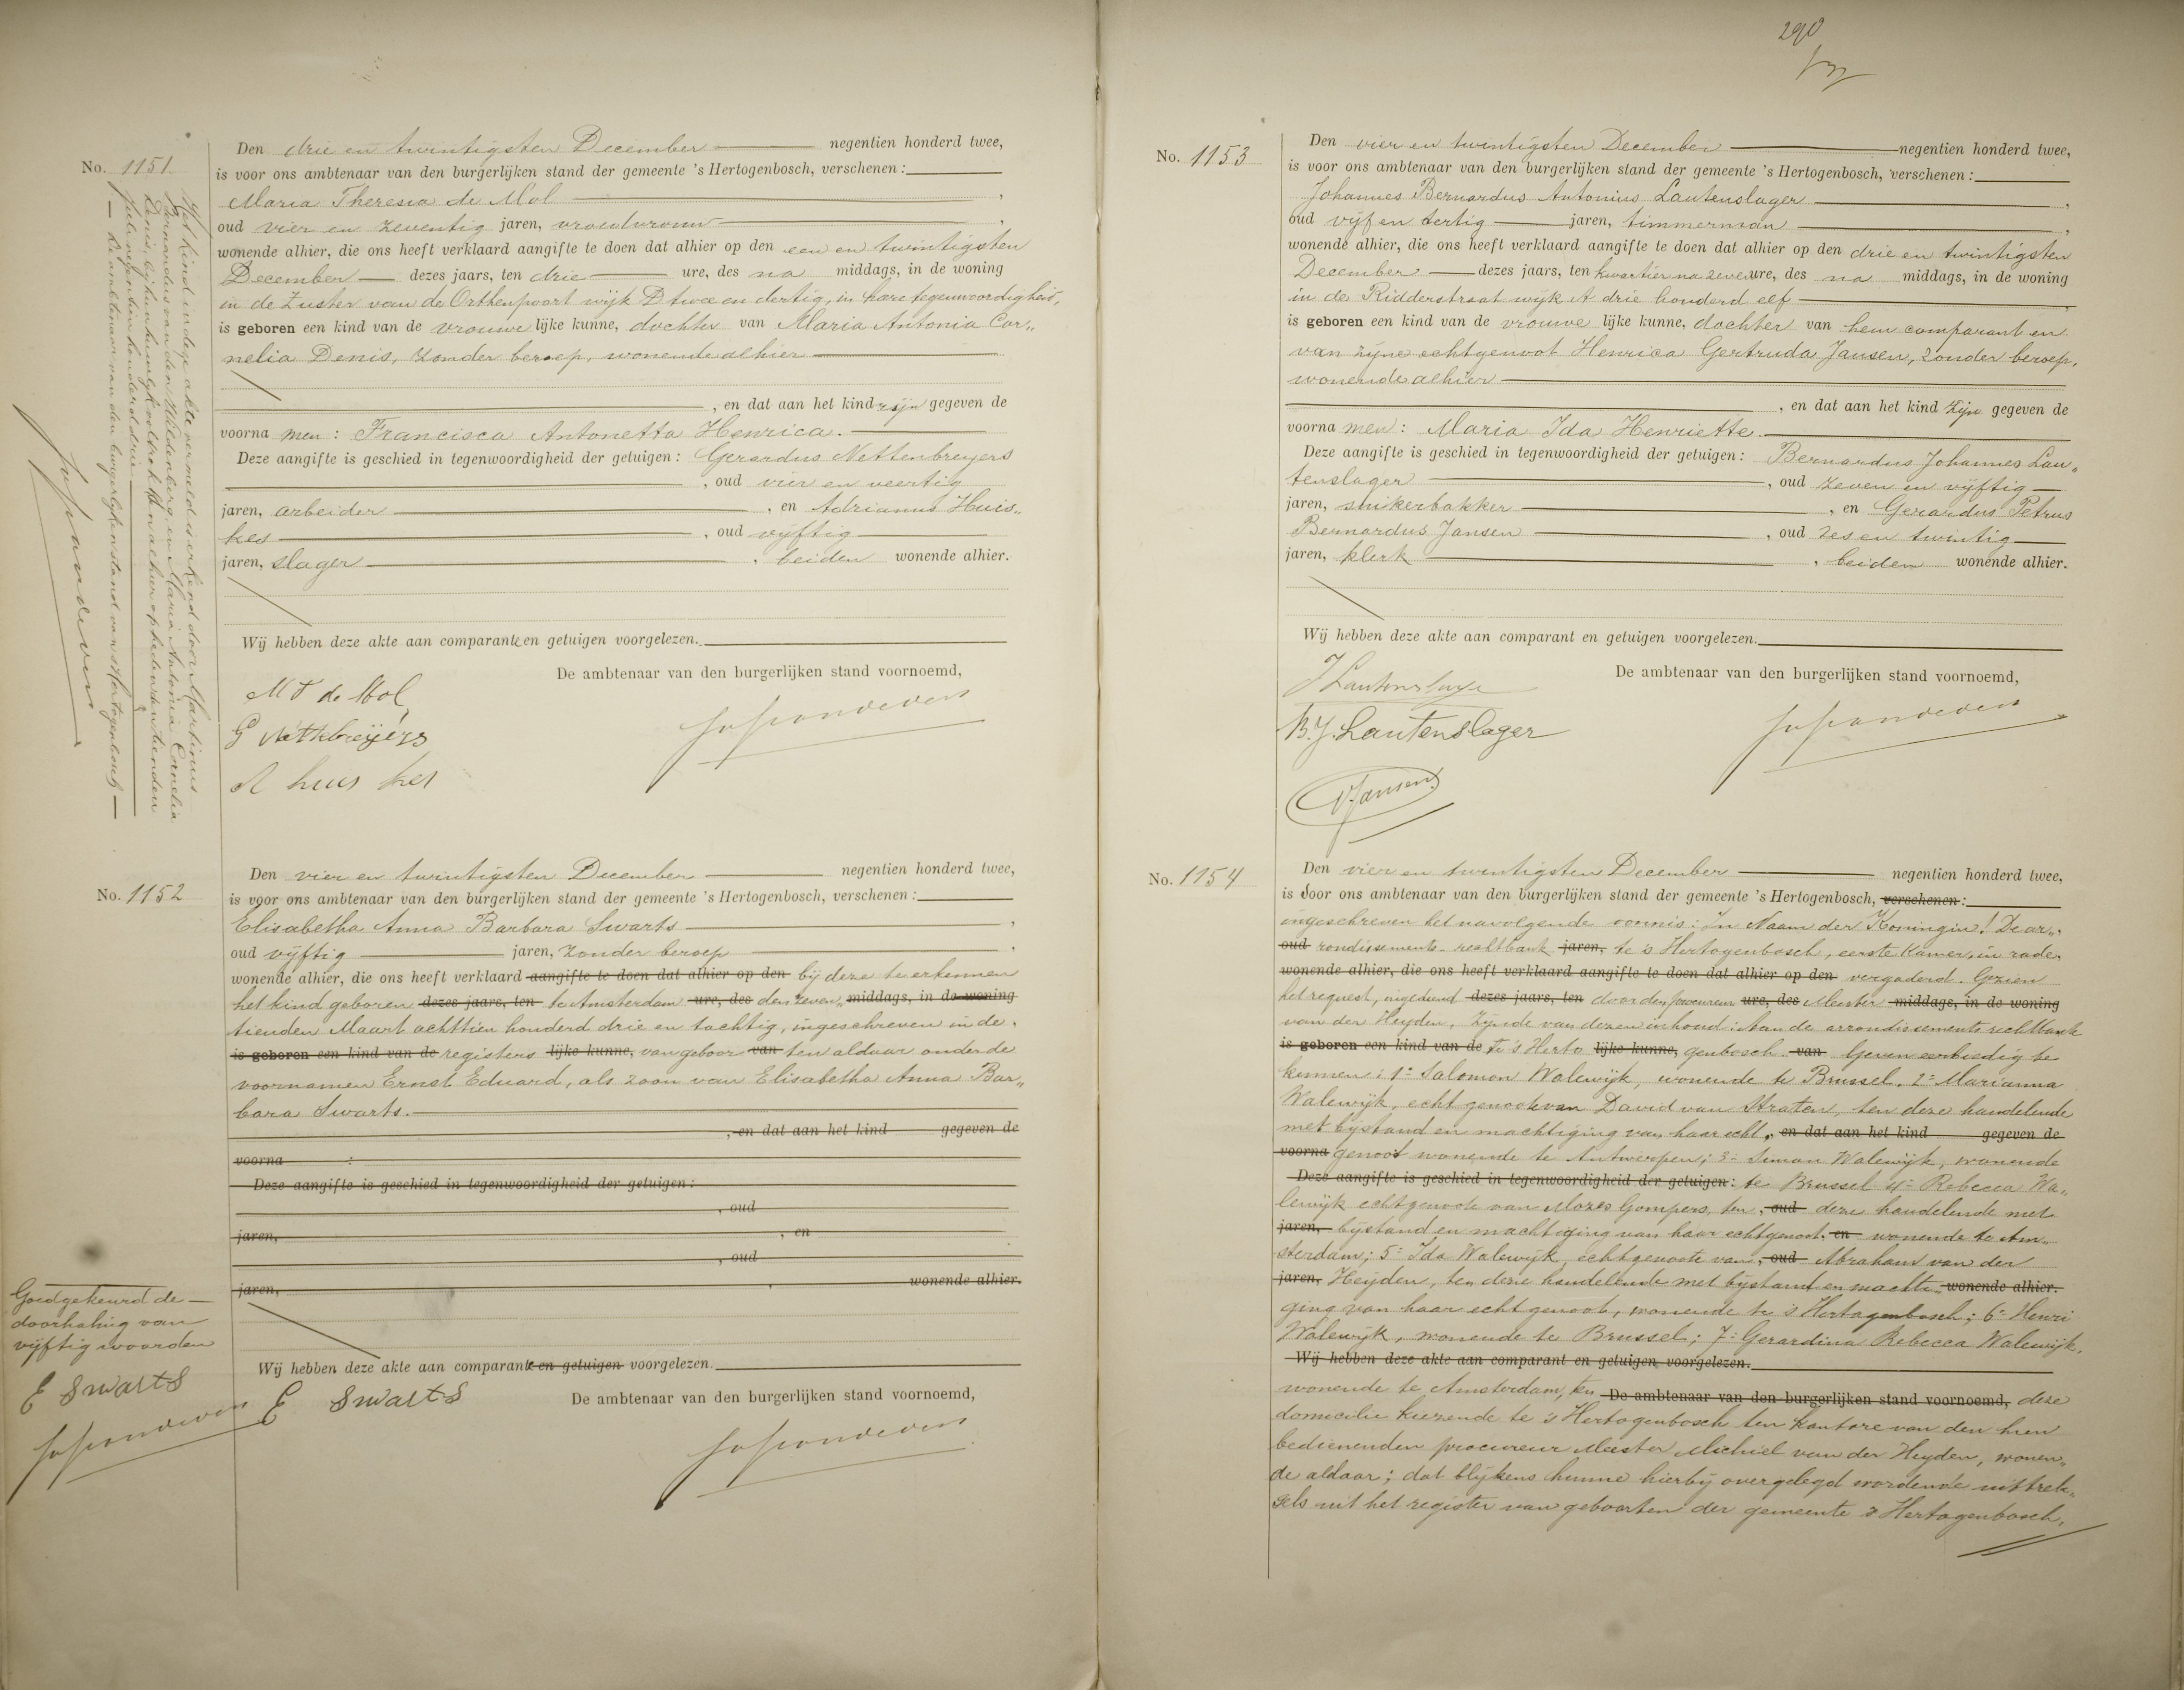 290
No. 1151
Den drie en twintigsten December negentien honderd twee,
is voor ons ambtenaar van den burgerlijken stand der gemeente 's Hertogenbosch, verschenen:
Maria Theresia de Mol,
oud vier en zeventig jaren, vroedvrouw,
wonende alhier, die ons heeft verklaard aangifte te doen dat alhier op den een en twintigsten
December dezes jaars, ten drie ure, des na middags, in de woning
in de Zuster van de Orthenpoort wijk D twee en dertig, in hare tegenwoordigheid,
is geboren een kind van de vrouwe lijke kunne, dochter van Maria Antonia Cor„
nelia Denis, zonder beroep, wonende alhier
, en dat aan het kind zijn gegeven de
voorna men: Francisca Antonetta Henrica.
Deze aangifte is geschied in tegenwoordigheid der getuigen: Gerardus Nettenbreyers
, oud vier en veertig
jaren, arbeider, en Adrianus Huis„
kes, oud vijftig
jaren, slager, beiden wonende alhier.
Wij hebben deze akte aan comparante en getuigen voorgelezen.
De ambtenaar van den burgerlijken stand voornoemd,
M T de Mol
A huis kes
Het kind in deze akte vermeld is erkend door Martinus
Bernardus van den Hildenberg en Maria Antonia Cornelia
Denis, bij hun huwelijk voltrokken alhier op heden den tienden
Juli negentien honderd drie
De ambtenaar van den burgerlijken stand van 's Hertogenbosch
No. 1152
Den vier en twintigsten December negentien honderd twee,
is voor ons ambtenaar van den burgerlijken stand der gemeente 's Hertogenbosch, verschenen:
Elisabetha Anna Barbara Swarts,
oud vijftig jaren, zonder beroep,
wonende alhier, die ons heeft verklaard aangifte te doen dat alhier op den bij deze te erkennen
het kind geboren dezes jaars, ten te Amsterdam ure, des den zeven„ middags, in de woning
tienden Maart achttien honderd drie en tachtig, ingeschreven in de
is geboren een kind van de registers lijke kunne, van geboor van ten aldaar onder de
voornamen Ernst Eduard, als zoon van Elisabetha Anna Bar„
bara Swarts.
, en dat aan het kind gegeven de
voorna :
Deze aangifte is geschied in tegenwoordigheid der getuigen:
, oud
jaren, , en
, oud
jaren, , wonende alhier.
Wij hebben deze akte aan comparante en getuigen voorgelezen.
De ambtenaar van den burgerlijken stand voornoemd,
E Swarts
Goedgekeurd de
doorhaling van
vijftig woorden
E Swarts
No. 1153
Den vier en twintigsten December negentien honderd twee,
is voor ons ambtenaar van den burgerlijken stand der gemeente 's Hertogenbosch, verschenen:
Johannes Bernardus Antonius Lautenslager,
oud vijf en dertig jaren, timmerman,
wonende alhier, die ons heeft verklaard aangifte te doen dat alhier op den drie en twintigsten
December dezes jaars, ten kwartier na zeven ure, des na middags, in de woning
in de Ridderstraat wijk A drie honderd elf,
is geboren een kind van de vrouwe lijke kunne, dochter van hem comparant en
van zijne echtgenoot Henrica Gertruda Jansen, zonder beroep,
wonende alhier
, en dat aan het kind zijn gegeven de
voorna men: Maria Ida Henriette.
Deze aangifte is geschied in tegenwoordigheid der getuigen: Bernardus Johannes Lau„
tenslager, oud zeven en vijftig
jaren, suikerbakker, en Gerardus Petrus
Bernardus Jansen, oud zes en twintig
jaren, klerk, beiden wonende alhier.
Wij hebben deze akte aan comparant en getuigen voorgelezen.
De ambtenaar van den burgerlijken stand voornoemd,
J Lautenslager
B.J. Lautenslager
Jansen
No. 1154
Den vier en twintigsten December negentien honderd twee,
is door ons ambtenaar van den burgerlijken stand der gemeente 's Hertogenbosch, verschenen:
ingeschreven het navolgende vonnis: In Naam der Koningin! De ar„
oud rondissements-rechtbank jaren, te 's Hertogenbosch, eerste Kamer, in rade,
wonende alhier, die ons heeft verklaard aangifte te doen dat alhier op den vergaderd. Gezien
het request, ingediend dezes jaars, ten door den procureur ure, des Meester middags, in de woning
van der Heyden, zijnde van dezen inhoud: Aan de arrondissements rechtbank
is geboren een kind van de te 's Herto lijke kunne, genbosch. van Geven eerbiedig te
kennen: 1e Salomon Walewijk, wonende te Brussel. 2e Marianna
Walewijk, echtgenoote van David van Straten, ten deze handelende
met bijstand en machtiging van haar echt„ en dat aan het kind gegeven de
voorna genoot wonende te Antwerpen; 3e Simon Walewijk, wonende
Deze aangifte is geschied in tegenwoordigheid der getuigen: te Brussel 4e Rebecca Wa„
lewijk echtgenoote van Mozes Gompers, ten, oud deze handelende met
jaren, bijstand en machtiging van haar echtgenoot, en wonende te Am„
sterdam; 5e Ida Walewijk, echtgenoote van, oud Abraham van der
jaren, Heyden, ten deze handelende met bijstand en machti„ wonende alhier.
ging van haar echtgenoot, wonende te 's Hertogenbosch; 6e Henri
Walewijk, wonende te Brussel; 7e Gerardina Rebecca Walewijk,
Wij hebben deze akte aan comparant en getuigen voorgelezen.
wonende te Amsterdam, ten De ambtenaar van den burgerlijken stand voornoemd, deze
domicilie kiezende te 's Hertogenbosch ten kantore van den hen
bedienenden procureur Meester Michiel van der Heyden, wonen„
de aldaar; dat blijkens hunne hierbij overgelegd wordende uittrek„
sels uit het register van geboorten der gemeente 's Hertogenbosch,